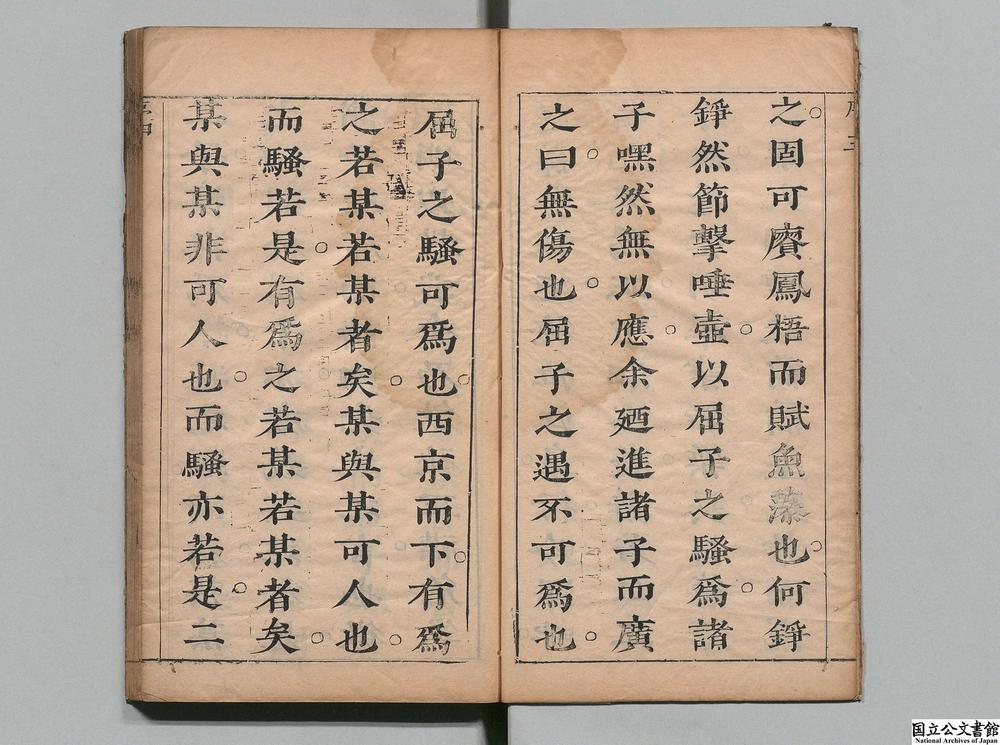 之固可賡鳳梧而賦魚藻也何錚
錚然節擊唾壺以屈子之騷為諸
子嘿然無以應余廼進諸子而廣
之曰無傷也屈子之遇不可為也
屈子之騷可為也西京而下有為
之若某若某者矣某與某可人也
而騷若是有為之若某若某者矣
某與某非可人也而騷亦若是二
国立公文書館
National Archives of Japan